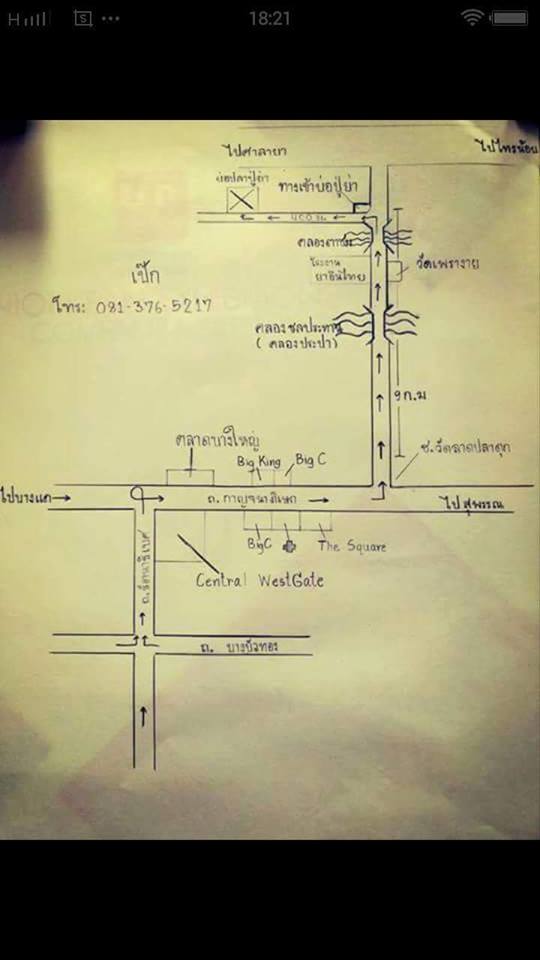 H
18:21
ไปศาลายา
ไปไทรน้อย
บ่อปลาปู่ย่า
ทางเข้าบ่อปู่ย่า
400 ม.
โรงงาน
ยาอินไทย
วัดเพรางาย
เป๊ก
โทร: 081-376-5217
คลองชลประทาน
(คลองประปา)
9 ก.ม
ซ.วัดลาดปลาดุก
ตลาดบางใหญ่
Big King
Big C
ไปบางแค
ถ.กาญจนาภิเษก
ไปสุพรรณ
BigC
The Square
ถ.รัตนาธิเบศ
Central WestGate
ถ. บางบัวทอง